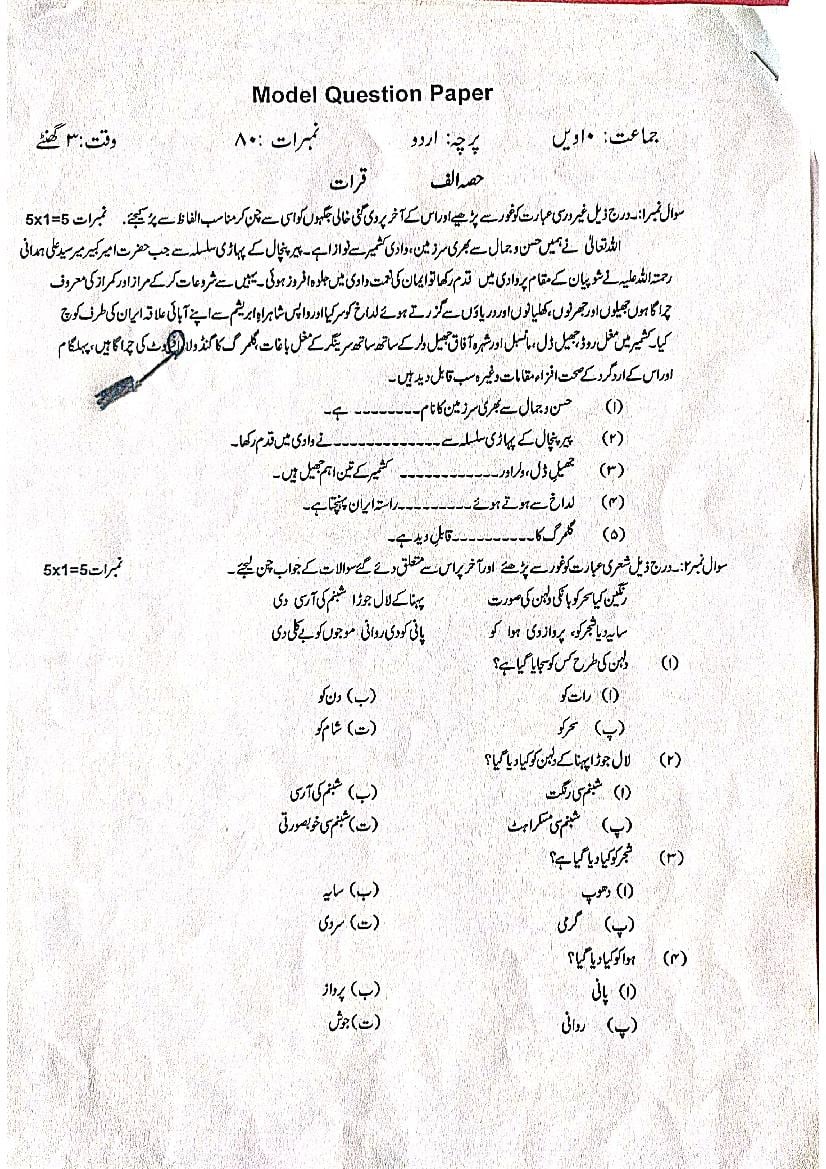 Model Question Paper
جماعت: ۱۰ویں پرچہ: اردو نمبرات :۸۰ وقت: ۳ گھنٹے
حصہ الف قرات
سوال نمبر۱:۔ درج ذیل غیر درسی عبارت کو غور سے پڑھیے اور اس کے آخر پر دی گئی خالی جگہوں کو اسی سے چن کر مناسب الفاظ سے پر کیجئے۔ نمبرات 5x1=5
اللہ تعالیٰ نے ہمیں حسن و جمال سے بھری سرزمین، وادی کشمیر سے نوازا ہے۔ پیر پنچال کے پہاڑی سلسلہ سے جب حضرت امیر کبیر میر سید علی ہمدانی
رحمتہ اللہ علیہ نے شوپیان کے مقام پر وادی میں قدم رکھا تو ایمان کی نعمت وادی میں جلوہ افروز ہوئی۔ یہیں سے شروعات کر کے مراز اور کمراز کی معروف
چراگاہوں جھیلوں اور جھرنوں، کھلیانوں اور دریاؤں سے گزرتے ہوئے لداخ کو سر کیا اور واپس شاہراہ ابریشم سے اپنے آبائی علاقہ ایران کی طرف کوچ
کیا۔ کشمیر میں مغل روڈ، جھیل ڈل، مانسبل اور شہرہ آفاق جھیل ولر کے ساتھ ساتھ سرینگر کے مغل باغات، گلمرگ کا گنڈولا، کی چراگاہیں، پہلگام
اور اس کے ارد گرد کے صحت افزاء مقامات وغیرہ سب قابل دید ہیں۔
(۱) حسن و جمال سے بھری سرزمین کا نام-------- ہے۔
(۲) پیر پنچال کے پہاڑی سلسلہ سے-------------نے وادی میں قدم رکھا۔
(۳) جھیل ڈل، ولر اور------------ کشمیر کے تین اہم جھیل ہیں۔
(۴) لداخ سے ہوتے ہوئے---------راستہ ایران پہنچتا ہے۔
(۵) گلمرگ کا----------قابل دید ہے۔
سوال نمبر۲:۔ درج ذیل شعری عبارت کو غور سے پڑھئے اور آخر پر اس سے متعلق دئے گئے سوالات کے جواب چن لیجئے۔ نمبرات 5x1=5
رنگین کیا سحر کو بانکی دلہن کی صورت پہنا کے لال جوڑا شبنم کی آرسی دی
سایہ دیا شجر کو، پرواز دی ہوا کو پانی کو دی روانی موجوں کو بے کلی دی
(۱) دلہن کی طرح کس کو سجایا گیا ہے؟
(ا) رات کو (ب) دن کو
(پ) سحر کو (ت) شام کو
(۲) لال جوڑا پہنا کے دلہن کو کیا دیا گیا؟
(ا) شبنم سی رنگت (ب) شبنم کی آرسی
(پ) شبنم سی مسکراہٹ (ت) شبنم سی خوبصورتی
(۳) شجر کو کیا دیا گیا ہے؟
(ا) دھوپ (ب) سایہ
(پ) گرمی (ت) سردی
(۴) ہوا کو کیا دیا گیا؟
(ا) پانی (ب) پرواز
(پ) روانی (ت) جوش